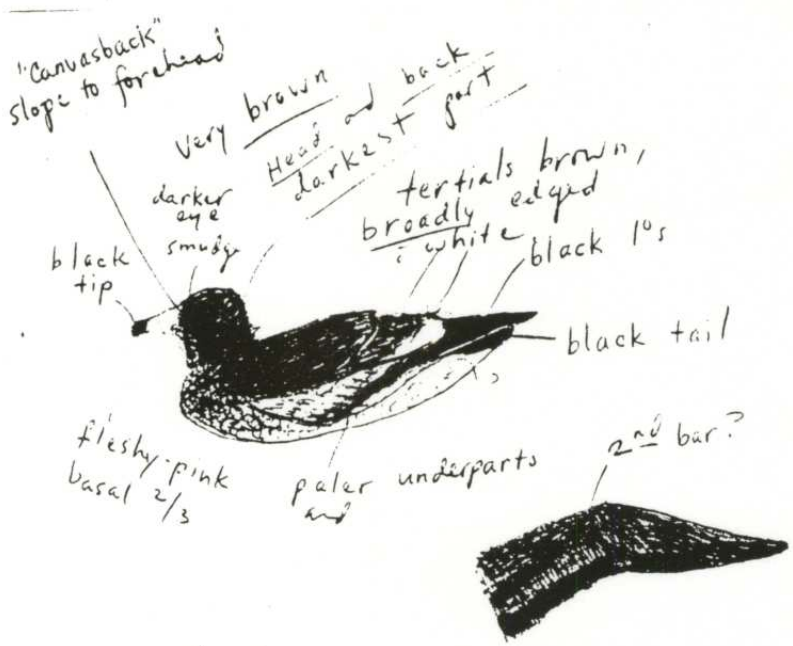 "Canvasback"
slope to forehead
Very brown
Head and back
darkest part
darker
eye
smudge
black
tip
tertials brown,
broadly edged
white
black 1°s
black tail
fleshy-pink
basal 2/3
paler underparts
and
2nd bar?